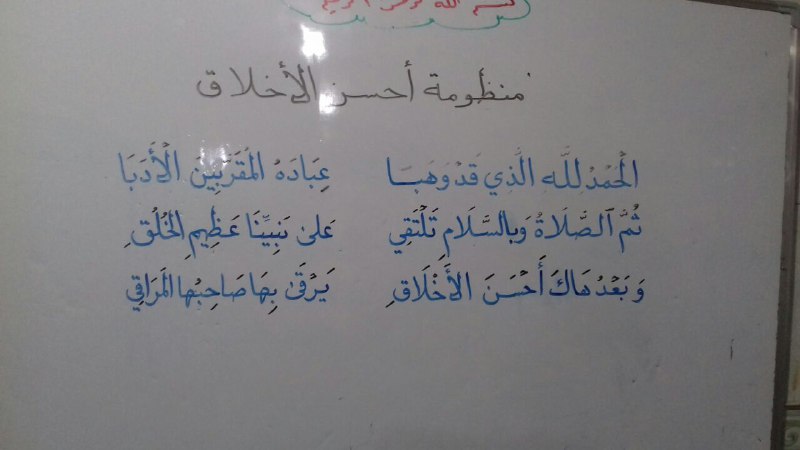 بسم الله الرحمن الرحيم
منظومة أحسن الأخلاق
الْحَمْدُ لِلَّهِ الَّذِي قَدْ وَهَبَا عِبَادَهُ الْمُقَرَّبِينَ الْأَدَبَا
ثُمَّ الصَّلَاةُ وَبِالسَّلَامِ تَلْتَقِي عَلَى نَبِيِّنَا عَظِيمِ الْخُلُقِ
وَبَعْدُ هَاكَ أَحْسَنَ الْأَخْلَاقِ يَرْقَى بِهَا صَاحِبُهَا الْمَرَاقِي